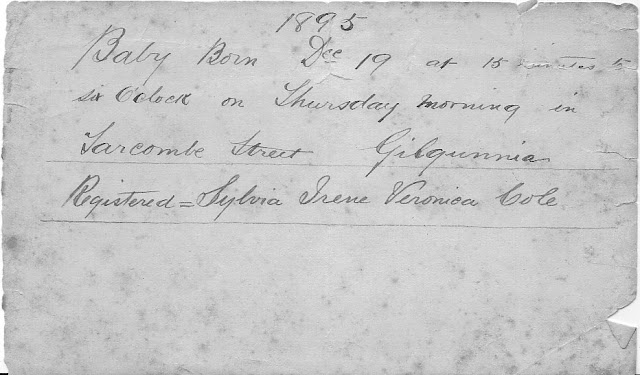 1895
Baby Born Dec 19 at 15 minutes to
six Oclock on Thursday morning in
Larcombe Street Gilgunnia
Registered = Sylvia Irene Veronica Cole